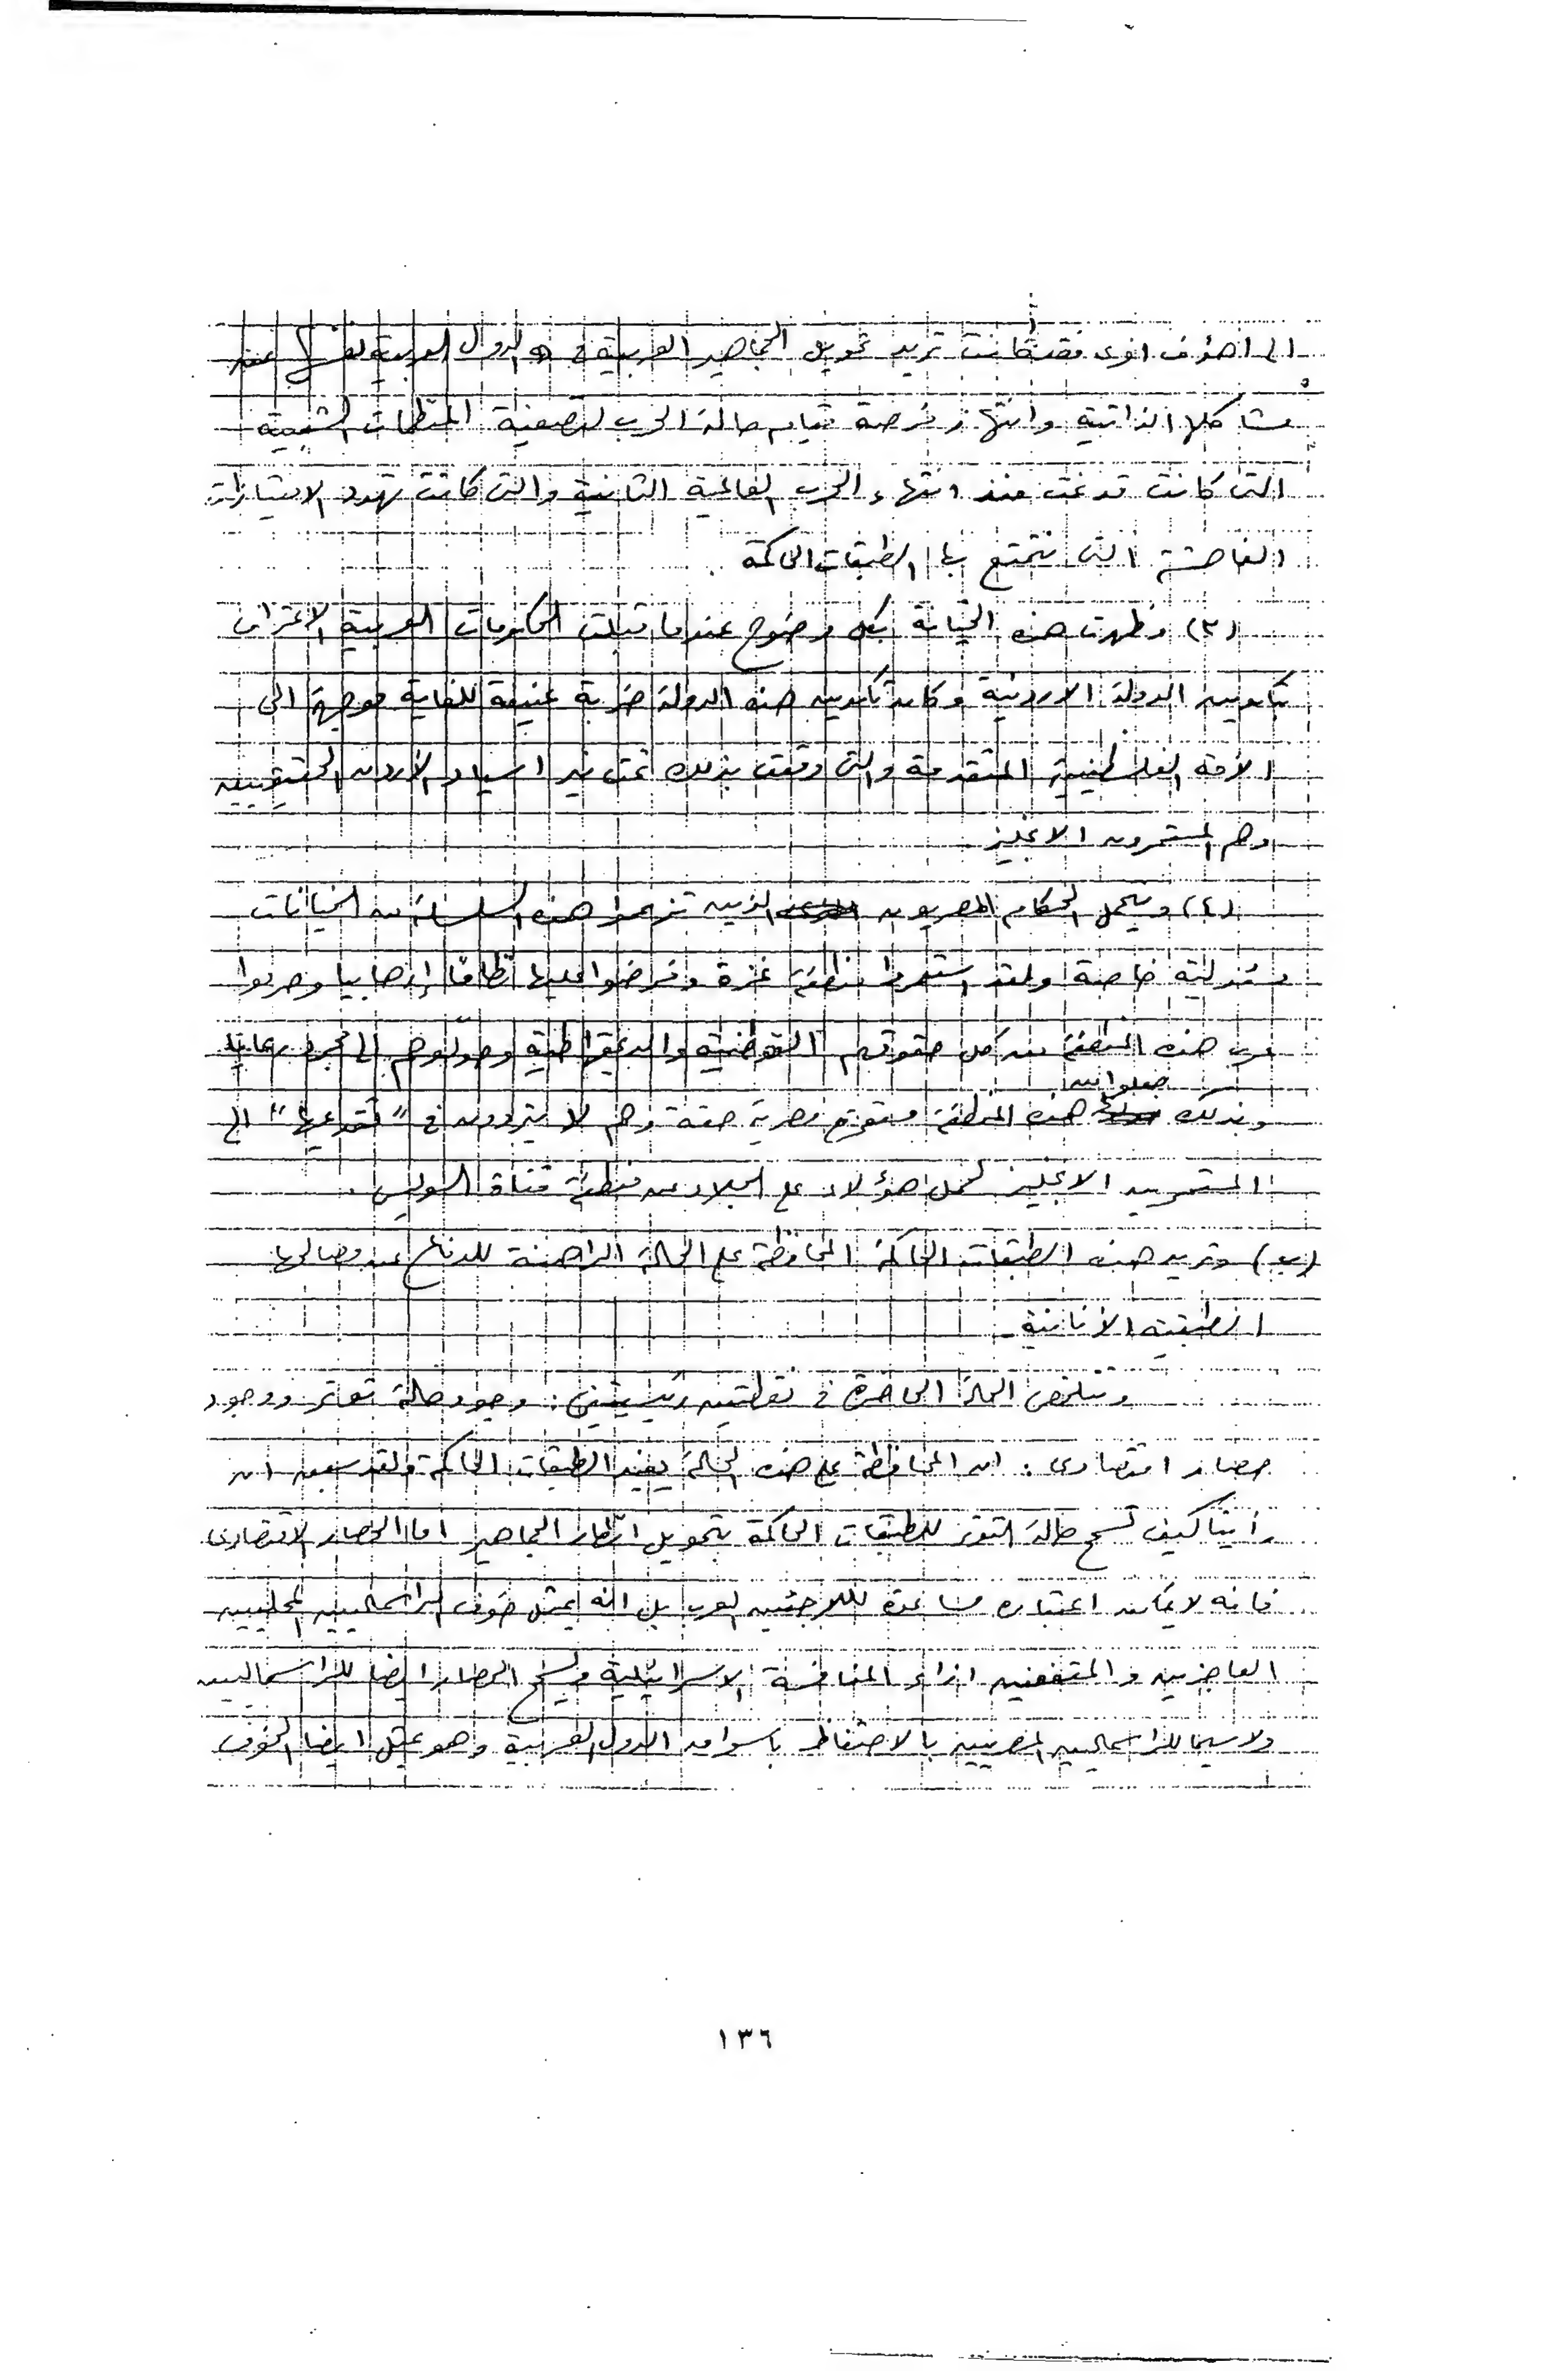 الى اهداف اخرى فقد كانت تريد تحويل الجماهير العربية في الدول العربية نفسها عن
مشاكلها الذاتية وانتهاز فرصة قيام حالة الحرب لتصفية المنظمات الشعبية
التى كانت قد نمت منذ انتهاء الحرب العالمية الثانية والتى كانت تهدد الامتيازات
الفاحشة التى تتمتع بها الطبقات الحاكمة .
(٣) وظهرت هذه الخيانة بكل وضوح عندما قبلت الحكومات العربية الاعتراف
بتكوين الدولة الاردنية وكان تكوين هذه الدولة ضربة عنيفة للغاية موجهة الى
الأمة الفلسطينية المتقدمة والتى وقعت بذلك تحت نير اسياد الأردن الحقيقيين
وهم المستعمرون الانجليز .
(٤) ويتحمل الحكام المصريون الذين تزعموا هذه السلسلة من الخيانات
مسئولية خاصة ولقد استعمروا منطقة غزة وفرضوا عليها نظامًا إرهابيا وحرموا
عرب هذه المنطقة من كل حقوقهم القومية والديمقراطية وحوّلوهم الى مجرد رعايا
وبذلك جعلوا من هذه المنطقة مستعمرة مصرية حقة وهم لا يترددون في "تقديمها" الى
المستعمرين الانجليز لحمل هؤلاء على الجلاء عن منطقة قناة السويس .
(ب) وتريد هذه الطبقات الحاكمة المحافظة على الحالة الراهنة للدفاع عن مصالحها
الطبقية الأنانية .
وتتلخص الحالة الحاضرة في نقطتين رئيسيتين : وجود حالة توتر ووجود
حصار اقتصادى . ان المحافظة على هذه الحالة يفيد الطبقات الحاكمة ولقد سبق ان
رأينا كيف تسمح حالة التوتر للطبقات الحاكمة بتحويل انظار الجماهير اما الحصار الاقتصادى
فانه لا يمكن اعتباره مساعدة للاجئين العرب بل انه يمثل خوف الرأسماليين المحليين
العاجزين والمتعفنين ازاء المنافسة الاسرائيلية ويسمح الحصار ايضا للرأسماليين
ولاسيما للرأسماليين المصريين بالاحتفاظ باسواق الدول العربية وهو يمثل ايضا الخوف
١٣٦